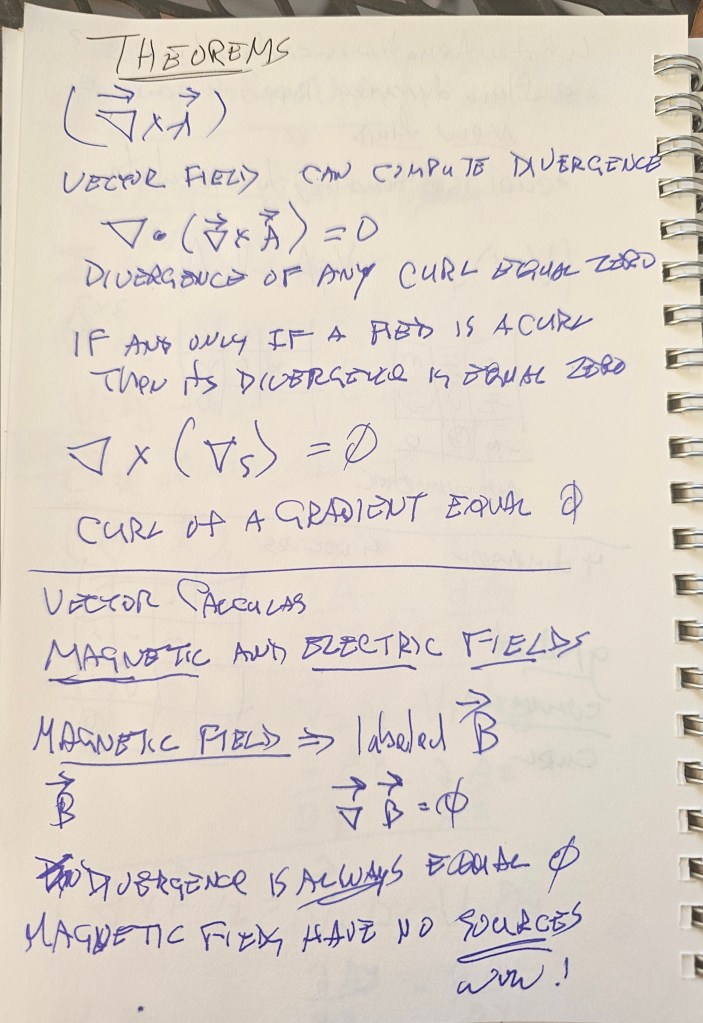 THEOREMS
(∇⃗ × A⃗)
VECTOR FIELD CAN COMPUTE DIVERGENCE
∇ • (∇⃗ × A⃗) = 0
DIVERGENCE OF ANY CURL EQUAL ZERO
IF AND ONLY IF A FIED IS A CURL
THEN ITS DIVERGENCE IS EQUAL ZERO
∇ × (∇s) = ∅
CURL OF A GRADIENT EQUAL ∅
VECTOR CALCULAS
MAGNETIC AND ELECTRIC FIELDS
MAGNETIC FIELD => labeled B⃗
B⃗ ∇⃗ B⃗ = ∅
DIVERGENCE IS ALWAYS EQUAL ∅
MAGNETIC FIELDS HAVE NO SOURCES
wow!